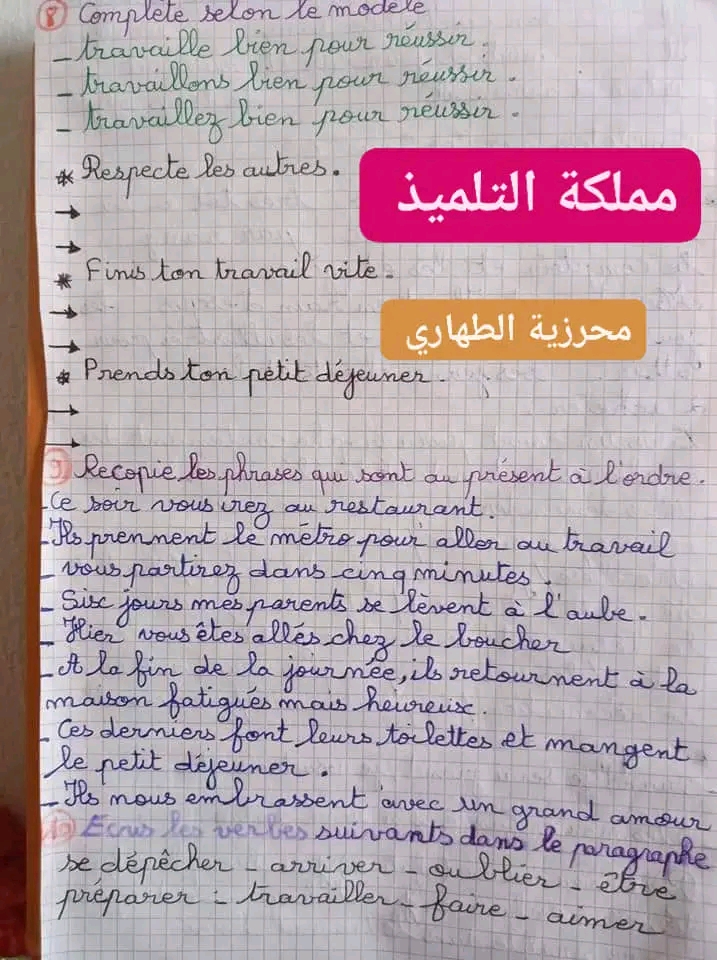 8 Complète selon le modèle
- travaille bien pour réussir.
- travaillons bien pour réussir.
- travaillez bien pour réussir.
* Respecte les autres.
مملكة التلميذ
→
→
* Finis ton travail vite.
→
محرزية الطهاري
→
* Prends ton petit déjeuner.
→
→
9 Recopie les phrases qui sont au présent à l'ordre.
- Ce soir vous irez au restaurant.
- Ils prennent le métro pour aller au travail
- vous partirez dans cinq minutes.
- Six jours mes parents se lèvent à l'aube.
- Hier vous êtes allés chez le boucher
- A la fin de la journée, ils retournent à la
maison fatigués mais heureux.
- Ces derniers font leurs toilettes et mangent
le petit déjeuner.
- Ils nous embrassent avec un grand amour
10 Ecris les verbes suivants dans le paragraphe
se dépêcher - arriver - oublier - être
préparer - travailler - faire - aimer